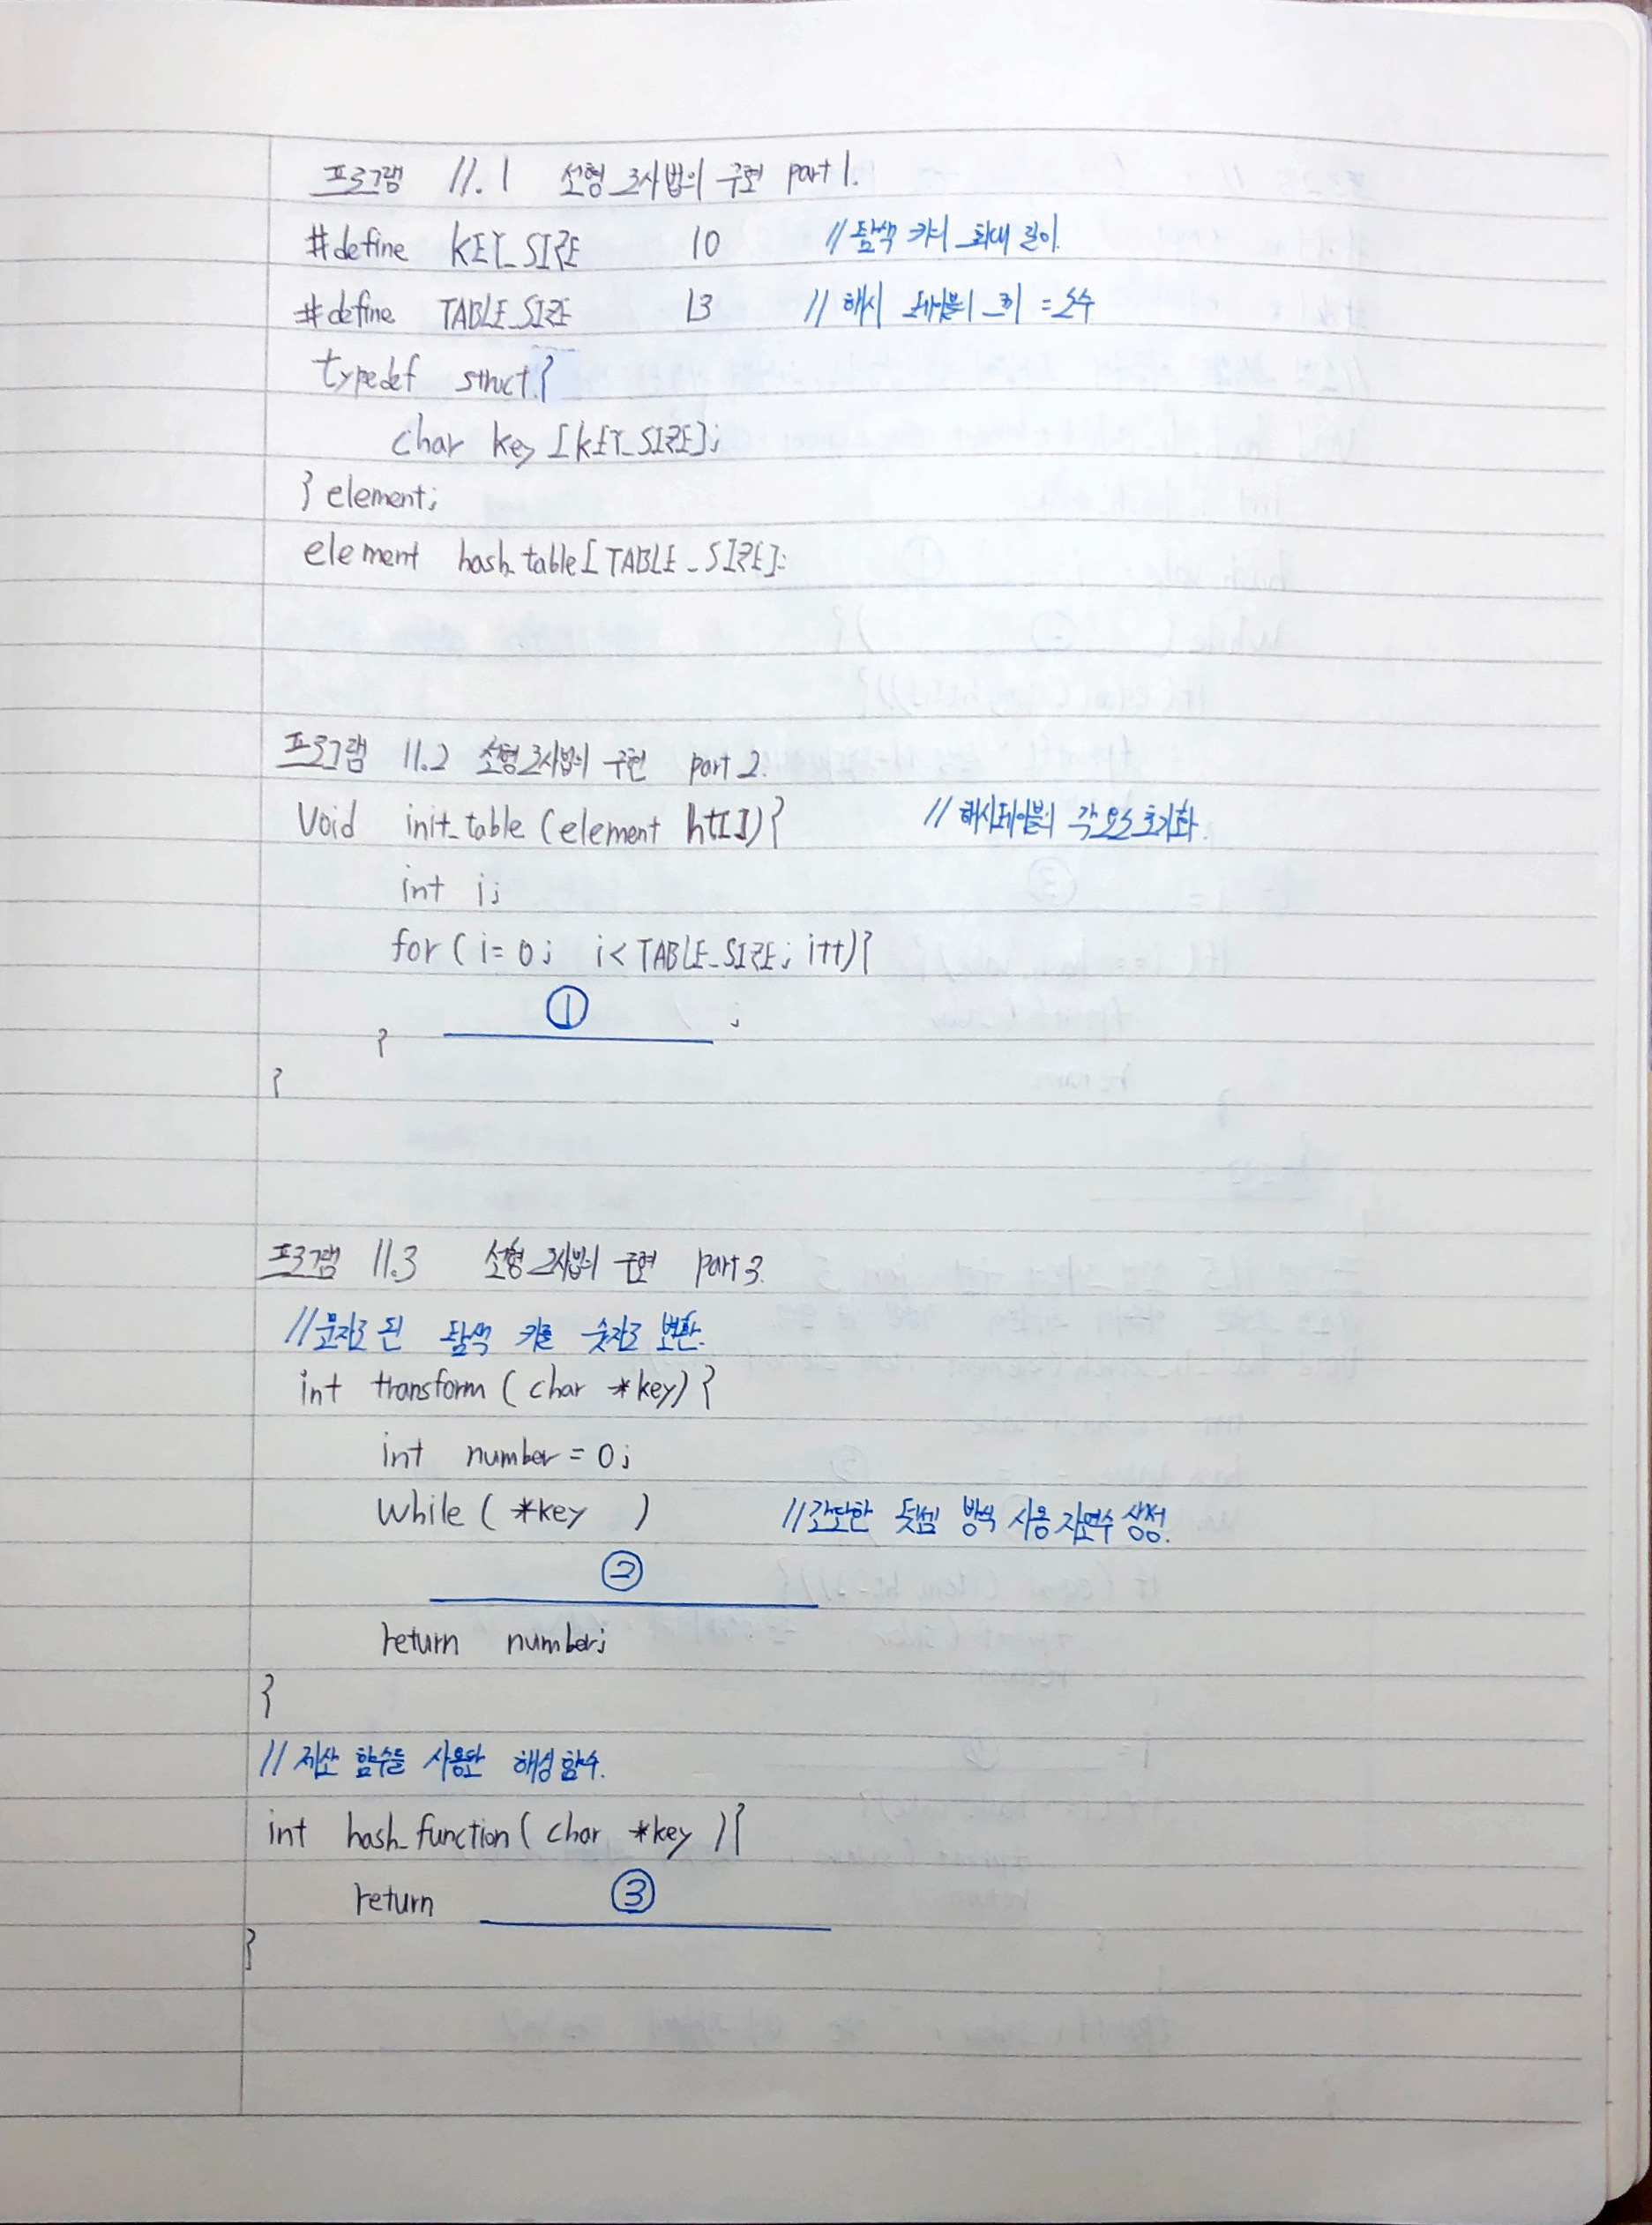 프로그램 11.1 선형 조사법의 구현 part 1.
#define KEY_SIZE 10 //탐색 키의 최대 길이
#define TABLE_SIZE 13 // 해시 테이블의 크기 = 소수
typedef struct {
char key [KEY_SIZE];
} element;
element hash_table[TABLE_SIZE];
프로그램 11.2 선형조사법의 구현 part 2.
Void init_table (element ht[]){ // 해시테이블의 각 요소 초기화.
int i;
for ( i= 0; i< TABLE_SIZE; i++){
① ;
}
}
프로그램 11.3 선형 조사법의 구현 part 3.
//문자로 된 탐색 키를 숫자로 변환.
int transform ( char *key) {
int number = 0;
While ( *key ) //간단한 덧셈 방식 사용 자연수 생성.
②
return number;
}
// 제산 함수를 사용한 해싱 함수.
int hash_function ( char *key ){
return ③
}